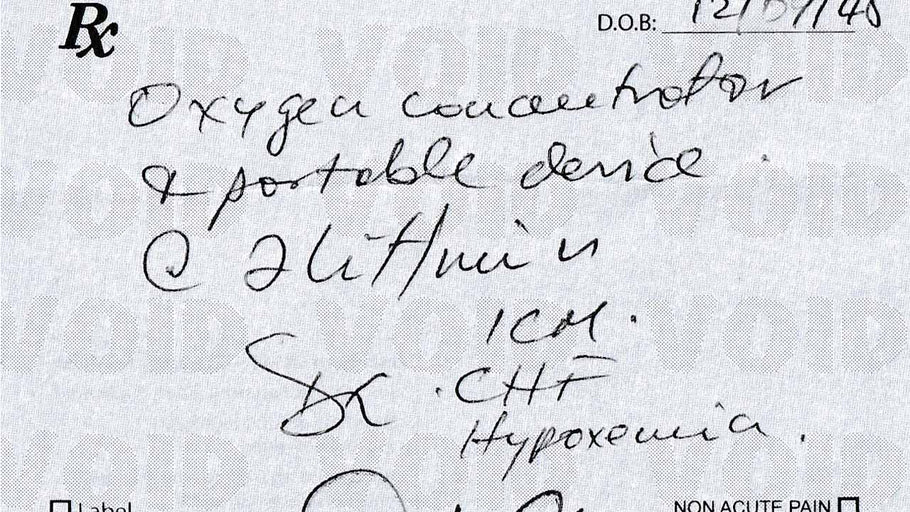 Rx
D.O.B: 12/09/48
Oxygen concentrator
& portable device.
@ 2lit/min
ICM.
Dx . CHF
Hypoxemia.
Label
NON ACUTE PAIN
VOID VOID VOID